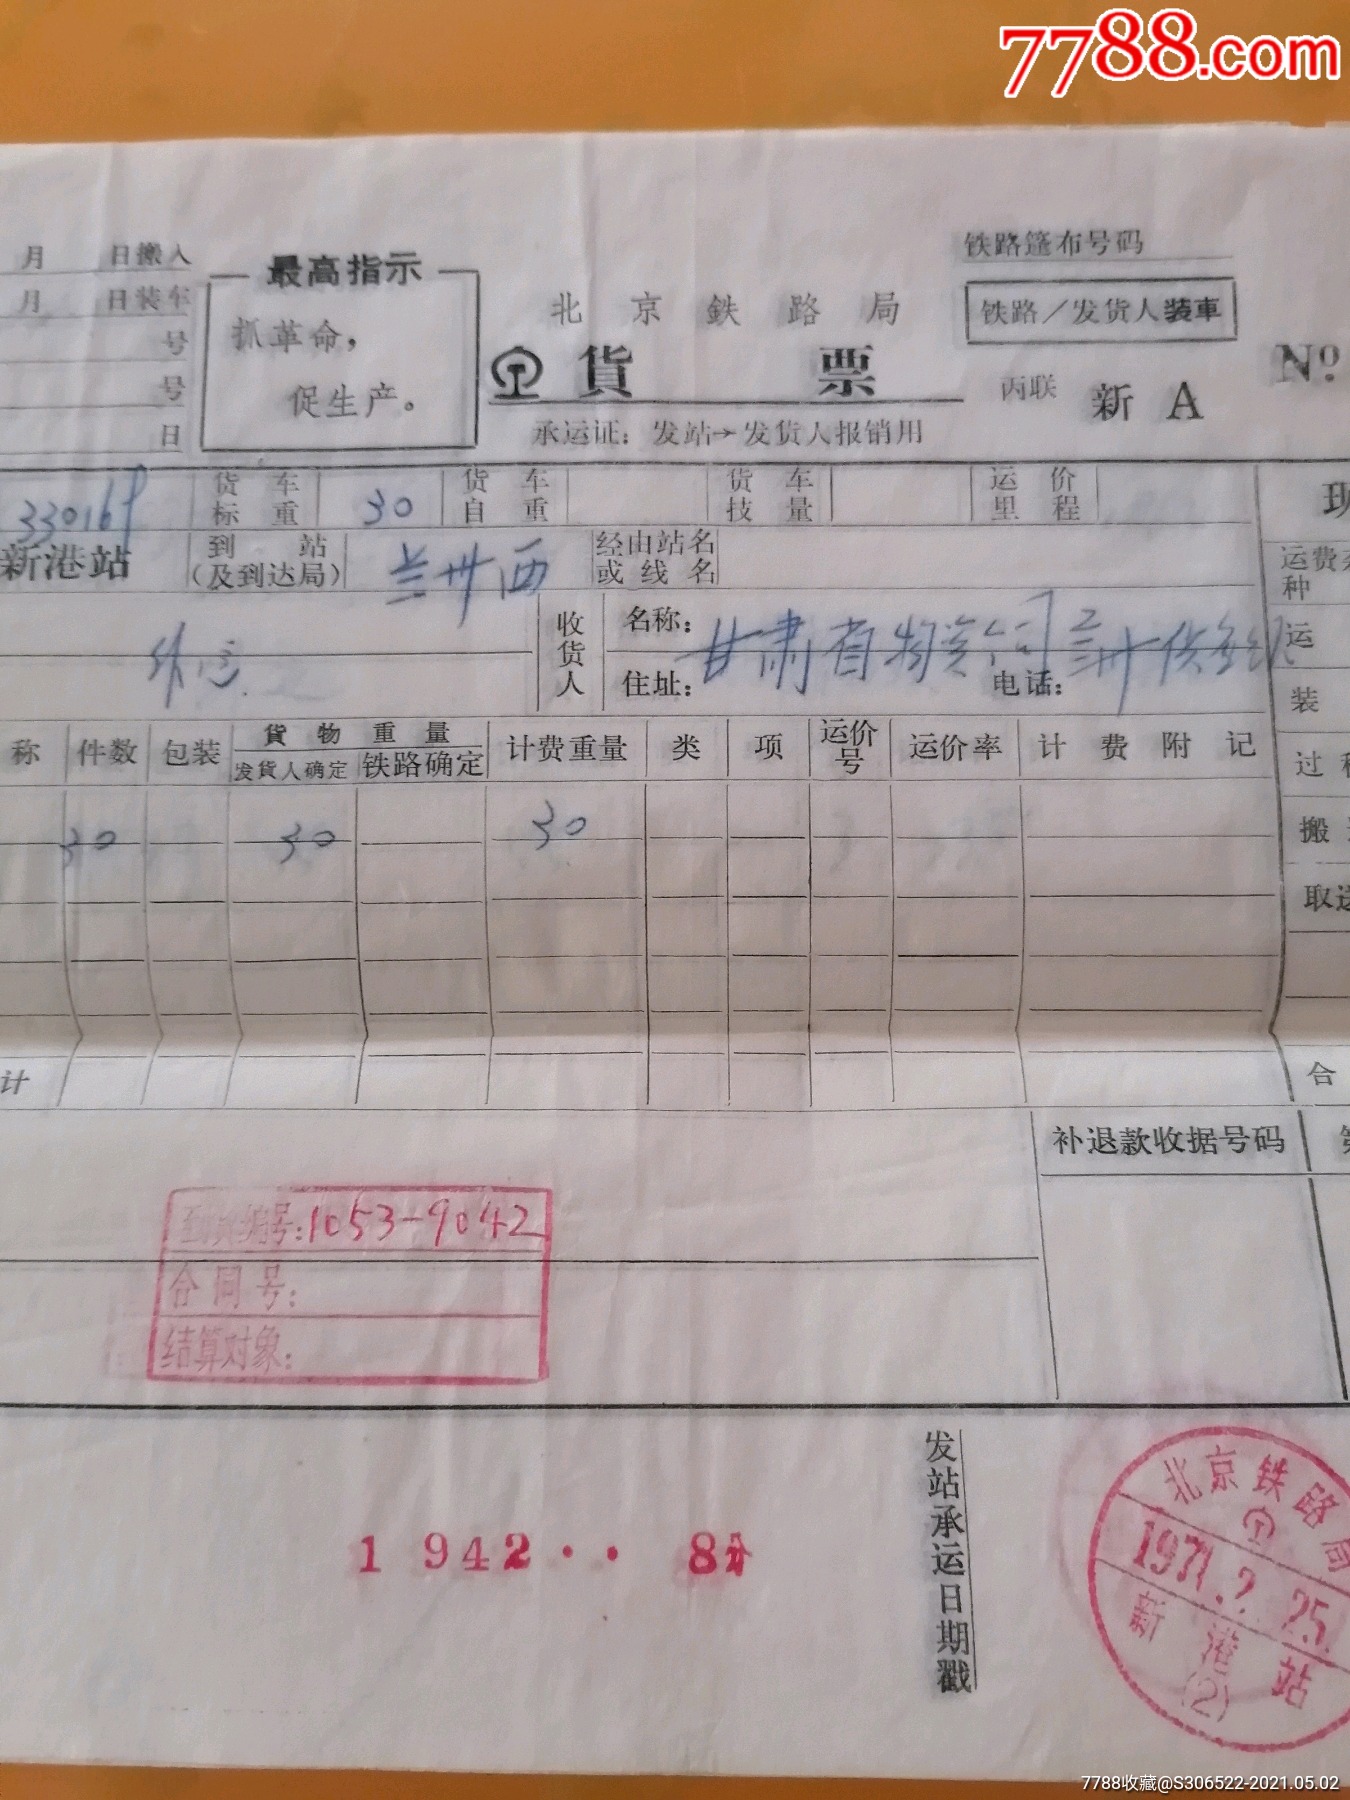 7788.com
月 日搬入
月 日装车
号
号
日
最高指示
抓革命，
促生产。
北京鉄路局
貨 票
承运证：发站→发货人报销用
铁路篷布号码
铁路/发货人装車
丙联 新 A
No
货车标重 30
货车自重
货车技量
运价里程
新港站
到站(及到达局) 兰州西
经由站名或线名
收货人
名称：
甘肃省物资公司兰州供
住址：
电话：
称 件数 包装 貨物重量 计费重量 类 项 运价号 运价率 计费附记
发貨人确定 铁路确定
30 30 30
计
运
装
搬
合
补退款收据号码
编号：1053-9042
合同号：
结算对象：
1942·· 8
发站承运日期戳
北京铁路局
1971.2.25.
新港站
(2)
7788收藏@S306522-2021.05.02